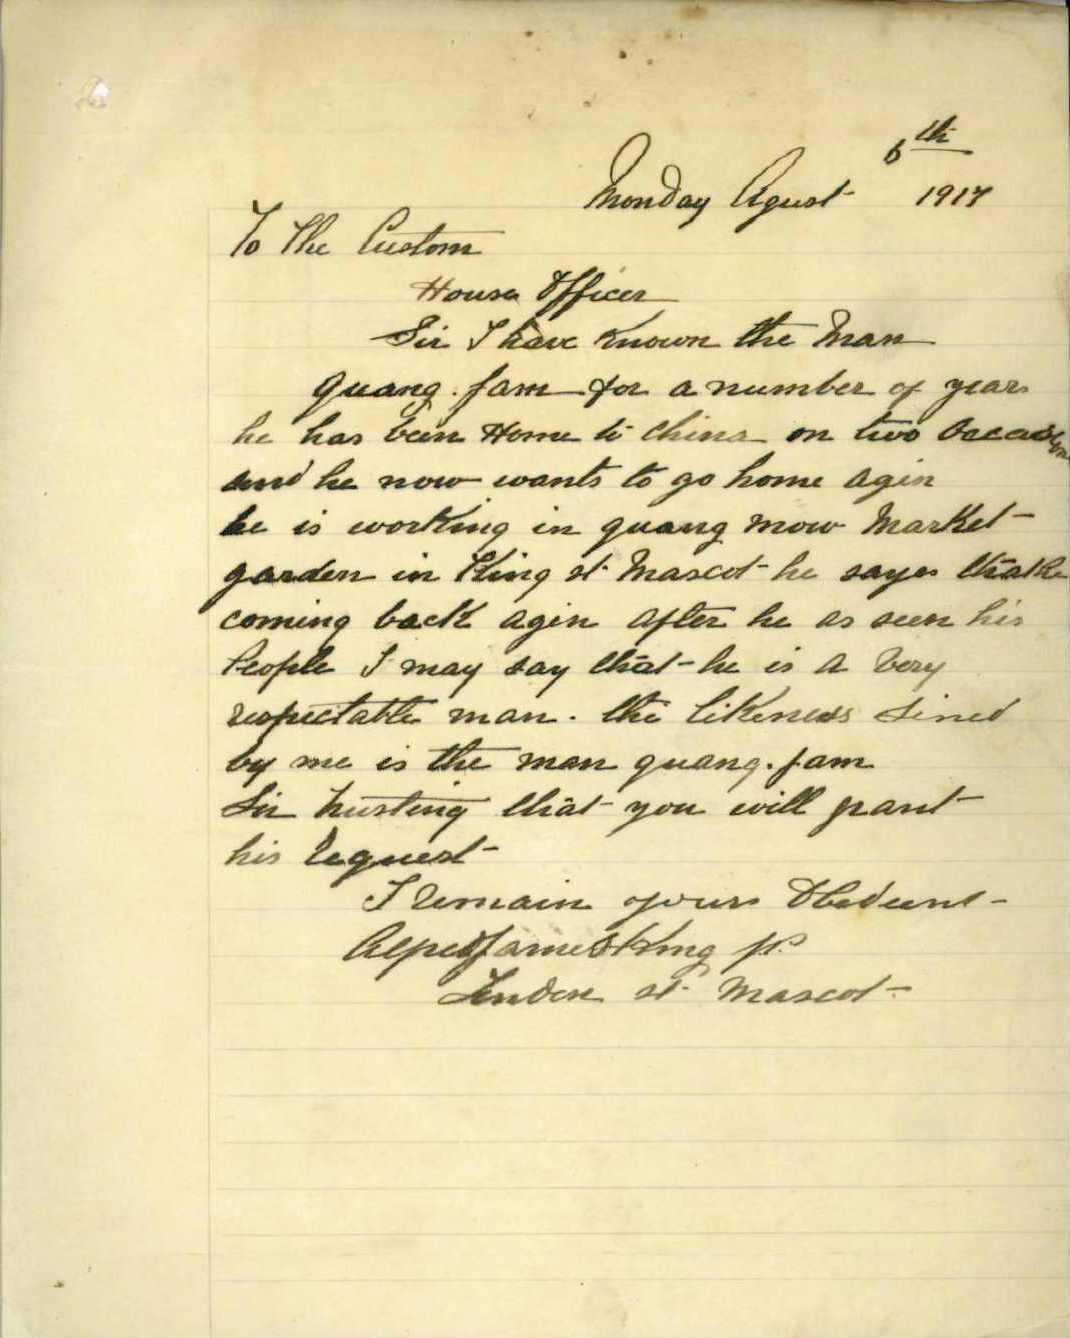 Monday Agust 6th 1917
To The Custom
House Officer
Sir I have Known the Man
Quang. fam for a number of years
he has been Home to China on two Occasions
and he now wants to go home agin
he is working in quang mow Market
garden in King st Mascot he sayes that he
coming back agin after he as seen his
People I may say that he is a Very
respectable man. the likeness sined
by me is the man quang. fam
Sir trusting that you will grant
his request
I remain yours Obedient
James King JP
st. Mascot